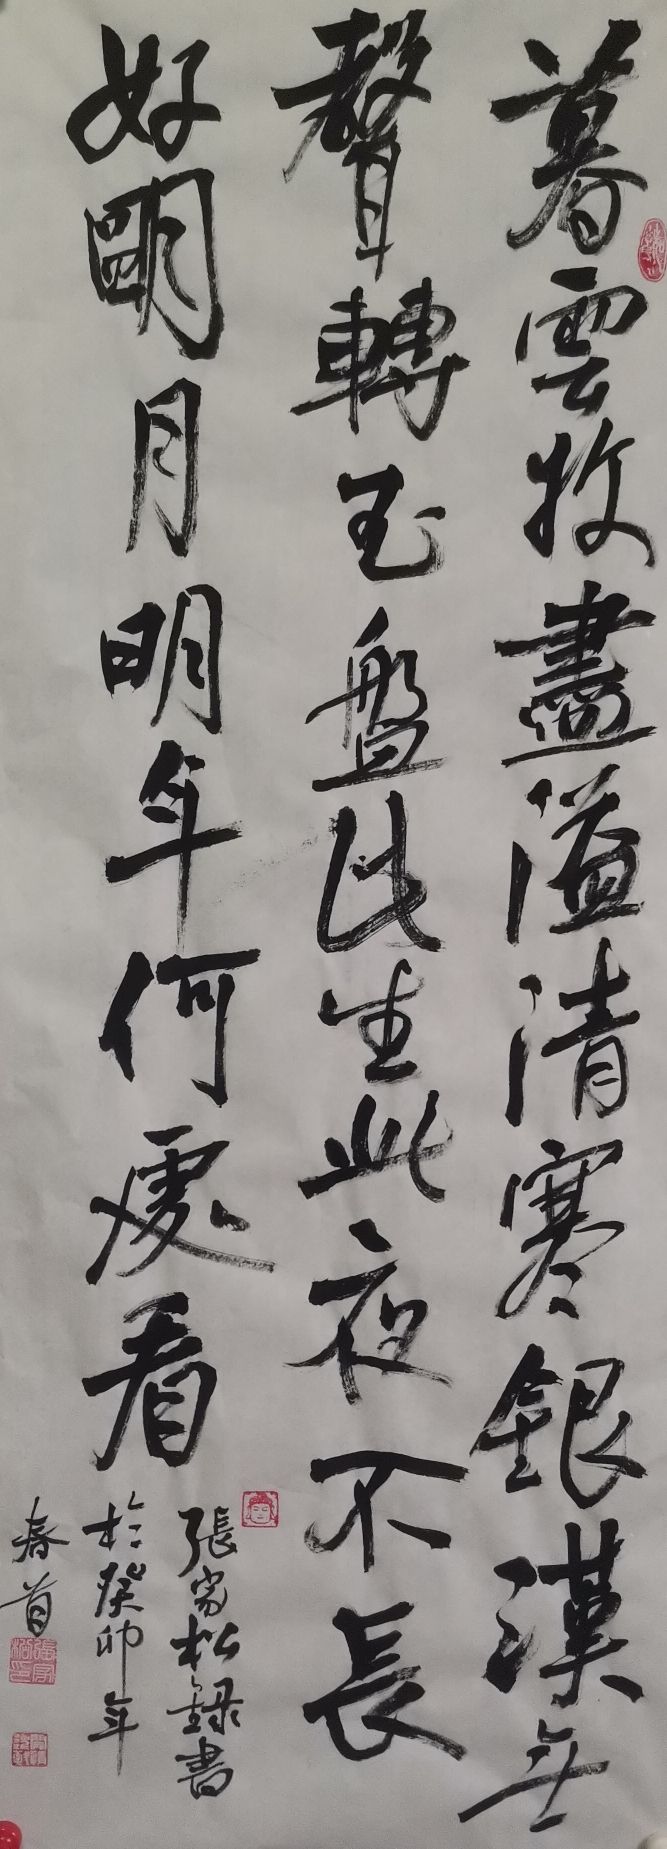 暮雲收盡溢清寒銀漢無
聲轉玉盤此生此夜不長
好明月明年何處看
張家松錄書
於癸卯年
春首